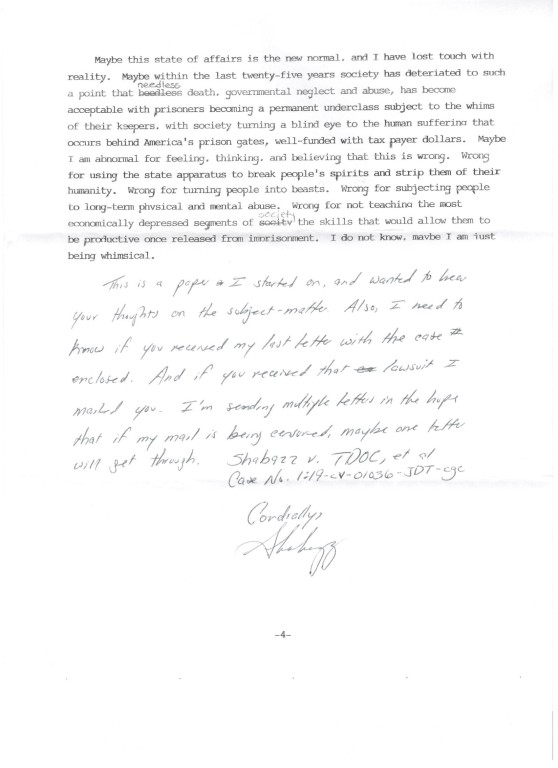 Maybe this state of affairs is the new normal, and I have lost touch with
reality. Maybe within the last twenty-five years society has deteriated to such
needless
a point that beedless death, governmental neglect and abuse, has become
acceptable with prisoners becoming a permanent underclass subject to the whims
of their keepers, with society turning a blind eye to the human suffering that
occurs behind America's prison gates, well-funded with tax payer dollars. Maybe
I am abnormal for feeling, thinking, and believing that this is wrong. Wrong
for using the state apparatus to break people's spirits and strip them of their
humanity. Wrong for turning people into beasts. Wrong for subjecting people
to long-term physical and mental abuse. Wrong for not teaching the most
society
economically depressed segments of the skills that would allow them to
be productive once released from imprisonment. I do not know, maybe I am just
being whimsical.
This is a paper I started on, and wanted to hear
your thoughts on the subject-matter. Also, I need to
know if you received my last letter with the case #
enclosed. And if you received that lawsuit I
mailed you. I'm sending multiple letters in the hope
that if my mail is being censored, maybe one letter
will get through. Shabazz v. TDOC, et al
Case No. 1:19-cv-01036-JDT-cgc
Cordially,
Shabazz
-4-